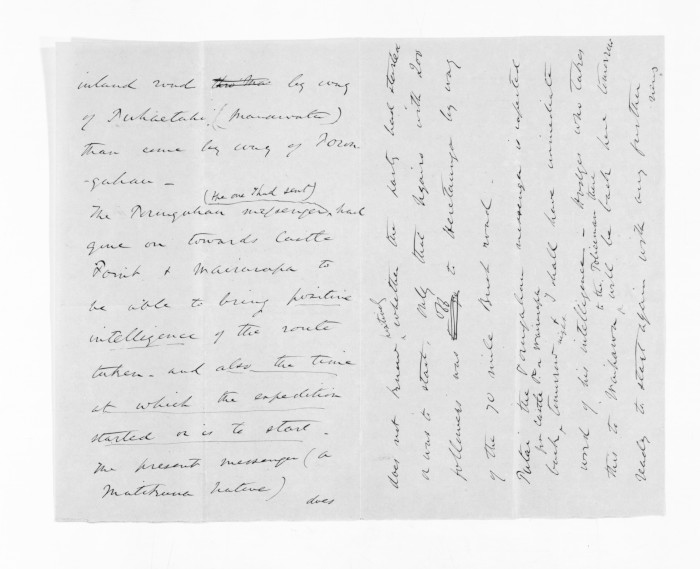 inland road by way
of Puhaetahi (Manawatu)
than come by way of Poron
-gahau -
(the one I had sent)
The Porongahau messenger had
gone on towards Castle
Point & Wairarapa to
be able to bring positive
intelligence of the route
taken - and also the time
at which the expedition
started or is to start -
The present messenger (a
native)
does
does not know whether the party had started
or was to start. Only that with 200
followers was off to Heretaunga by way
of the 70 mile Bush road -
the Porongahau messenger is expected
fm Castle Pt &
back tomorrow night & I shall have immediate
word of his intelligence - Hodges who takes
to the Policeman there
this to will be back here tomorrow
ready to start again with any further
news